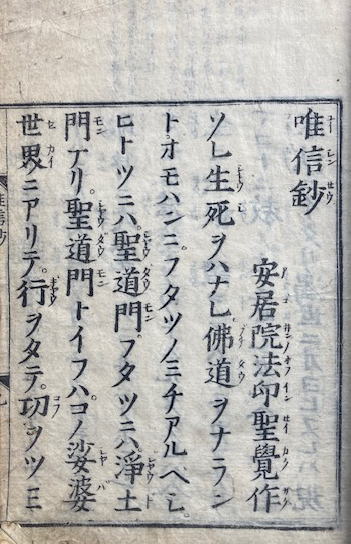 唯信鈔
安居院法印聖覺作
ソレ生死ヲハナレ佛道ヲナラン
トオモハンニ。フタツノミチアルヘシ。
ヒトツニハ聖道門。フタツニハ淨土
門ナリ。聖道門トイフハ。コノ娑婆
世界ニアリテ。行ヲタテ。功ヲツミ